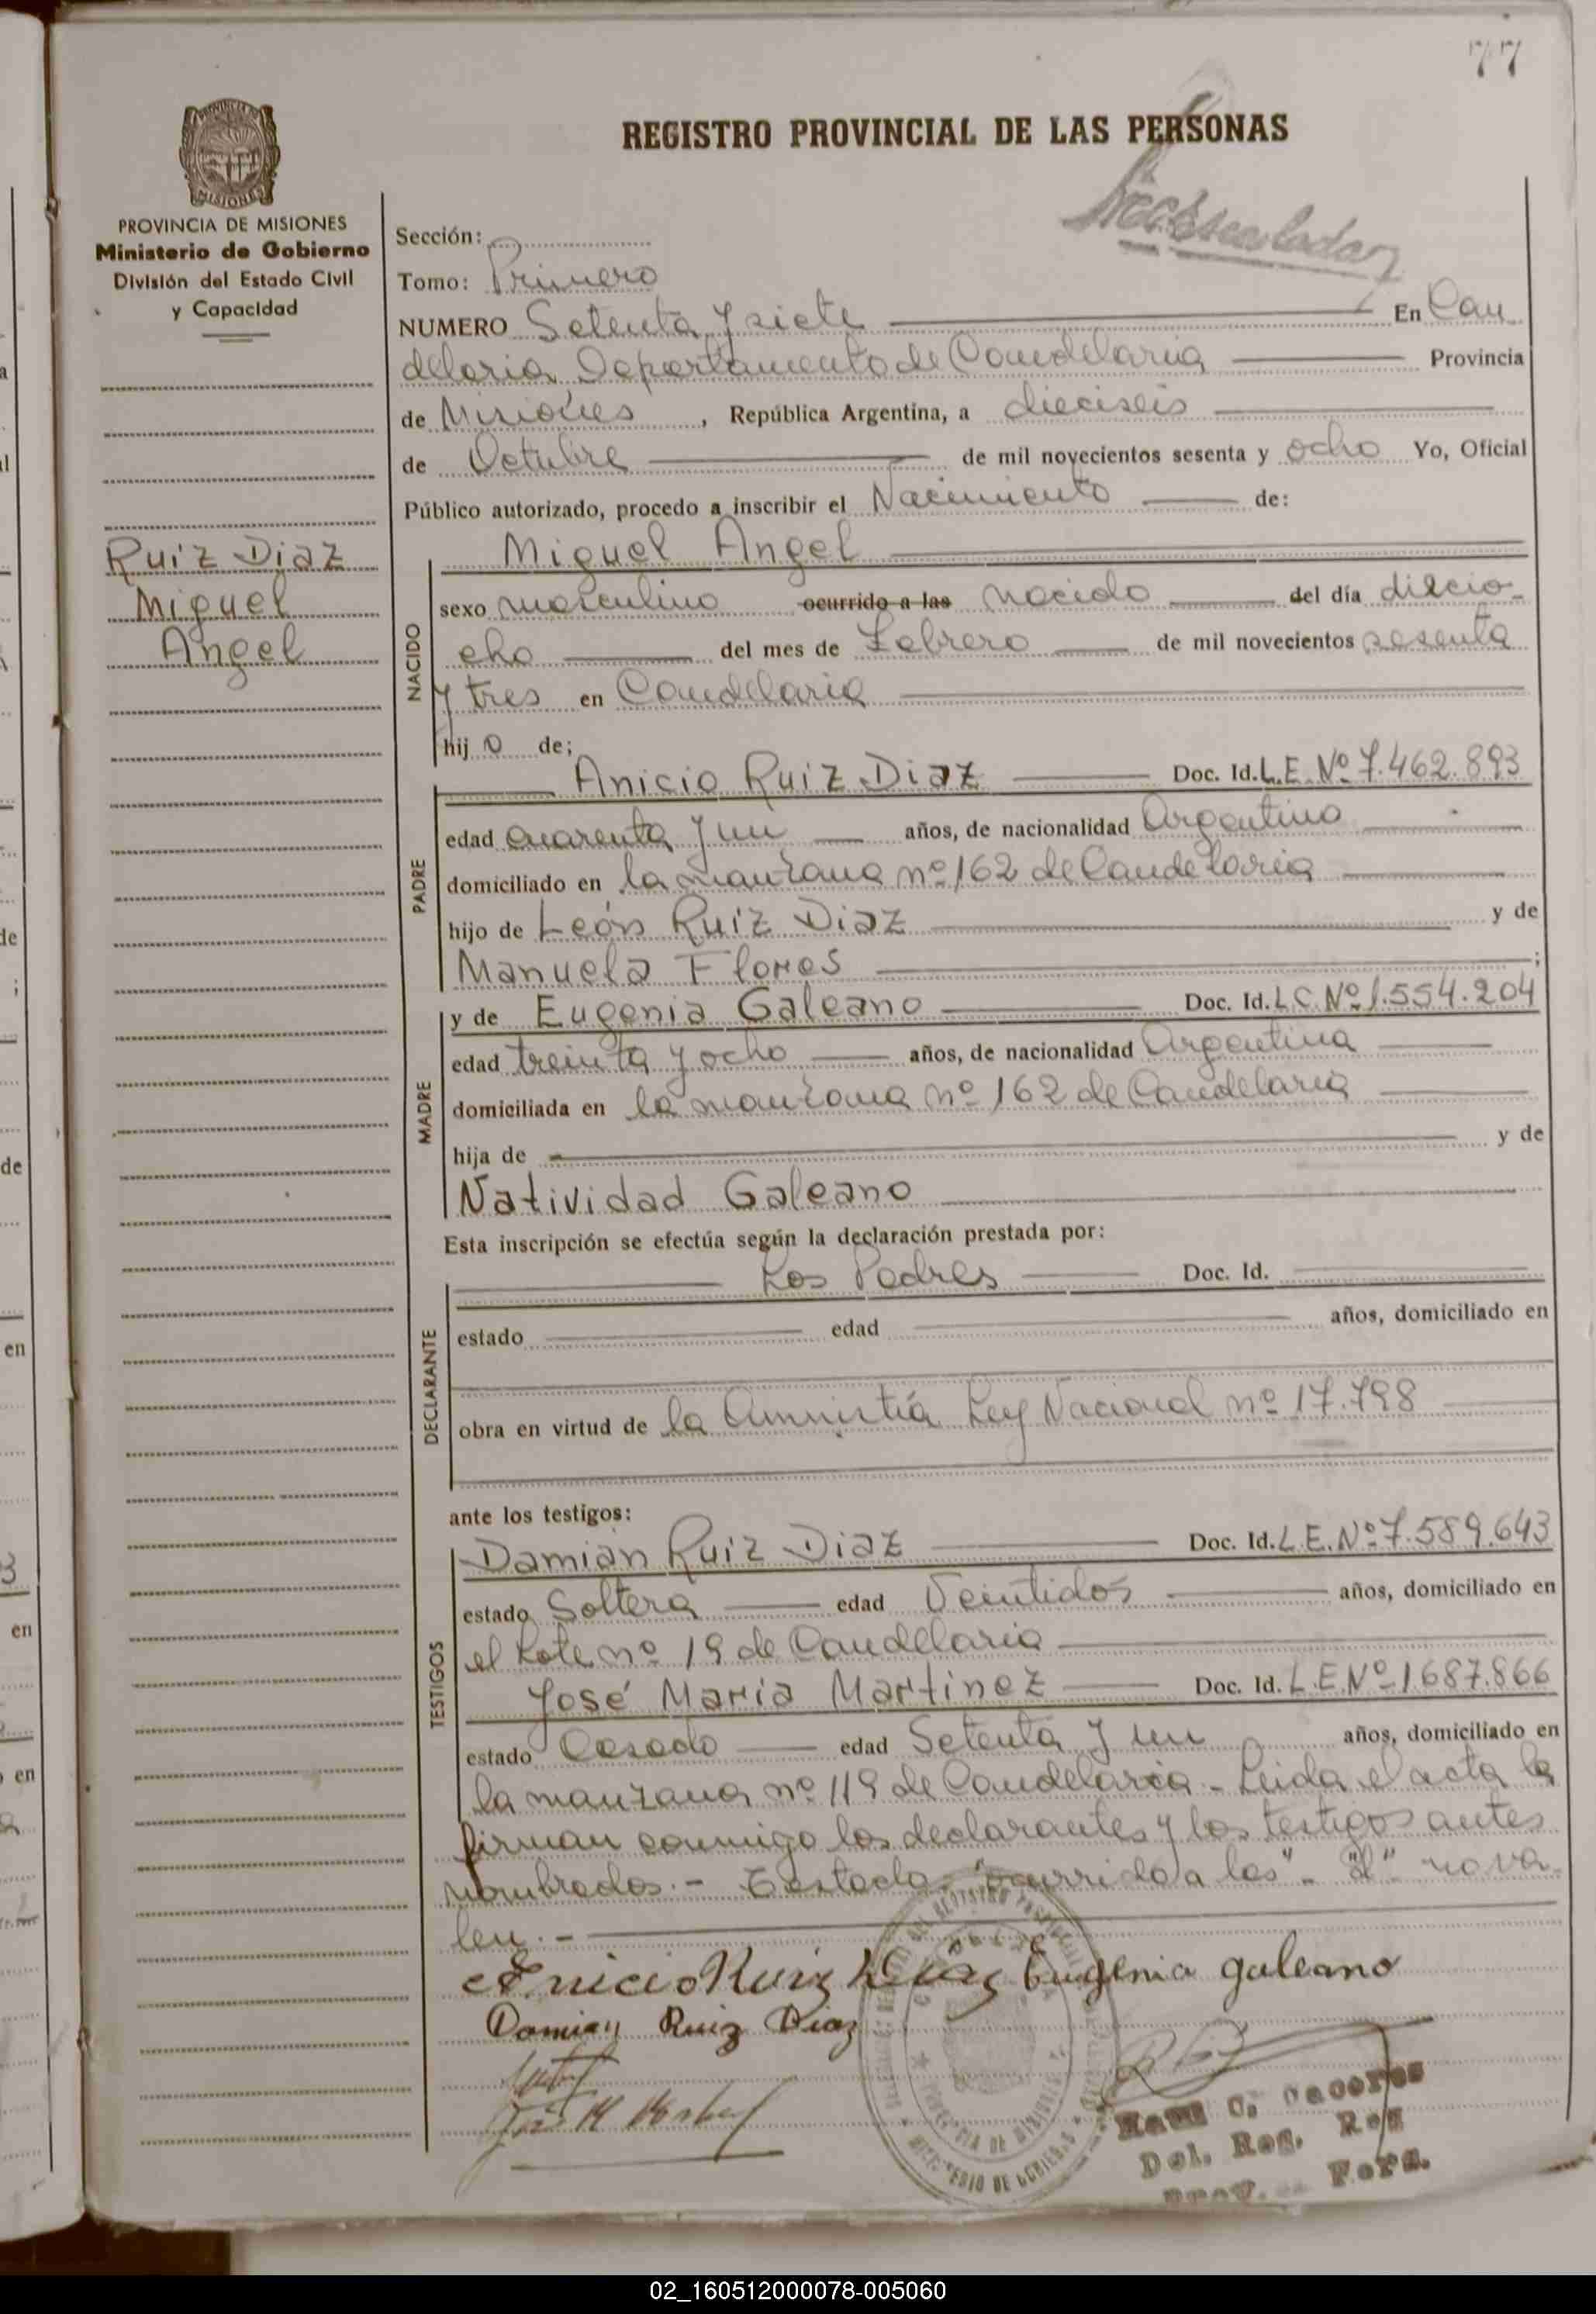 77
PROVINCIA DE MISIONES
Ministerio de Gobierno
División del Estado Civil
y Capacidad
Ruiz Diaz
Miguel
Angel
REGISTRO PROVINCIAL DE LAS PERSONAS
Sección:
Tomo: Primero
NUMERO Setenta y siete En Can
delaria, Departamento de Candelaria Provincia
de Misiones, República Argentina, a dieciseis
de Octubre de mil novecientos sesenta y ocho Yo, Oficial
Público autorizado, procedo a inscribir el Nacimiento de:
NACIDO
Miguel Angel
sexo masculino ocurrido a las nacido del día diecio-
cho del mes de Febrero de mil novecientos sesenta
y tres en Candelaria
hijo de;
PADRE
Anicio Ruiz Diaz Doc. Id. L.E. Nº 7.462.893
edad cuarenta y un años, de nacionalidad Argentino
domiciliado en la manzana nº 162 de Candelaria
hijo de León Ruiz Diaz y de
Manuela Flores ;
MADRE
y de Eugenia Galeano Doc. Id. L.C. Nº 1.554.204
edad treinta y ocho años, de nacionalidad Argentina
domiciliada en la manzana nº 162 de Candelaria
hija de y de
Natividad Galeano
Esta inscripción se efectúa según la declaración prestada por:
DECLARANTE
Los Padres Doc. Id.
estado edad años, domiciliado en
obra en virtud de la Amnistía Ley Nacional nº 17.798
ante los testigos:
TESTIGOS
Damian Ruiz Diaz Doc. Id. L.E. Nº 7.589.643
estado Soltera edad Veintidos años, domiciliado en
el Lote nº 19 de Candelaria
José Maria Martinez Doc. Id. L.E Nº 1687.866
estado Casado edad Setenta y un años, domiciliado en
la manzana nº 119 de Candelaria - Leida el acta la
firman conmigo los declarantes y los testigos antes
nombrados.- Testado: "ocurrido a las" - "d" no va-
len.-
Anicio Ruiz Diaz Eugenia galeano
Damian Ruiz Diaz
Del. Reg.
Prov. Pers.
02_160512000078-005060